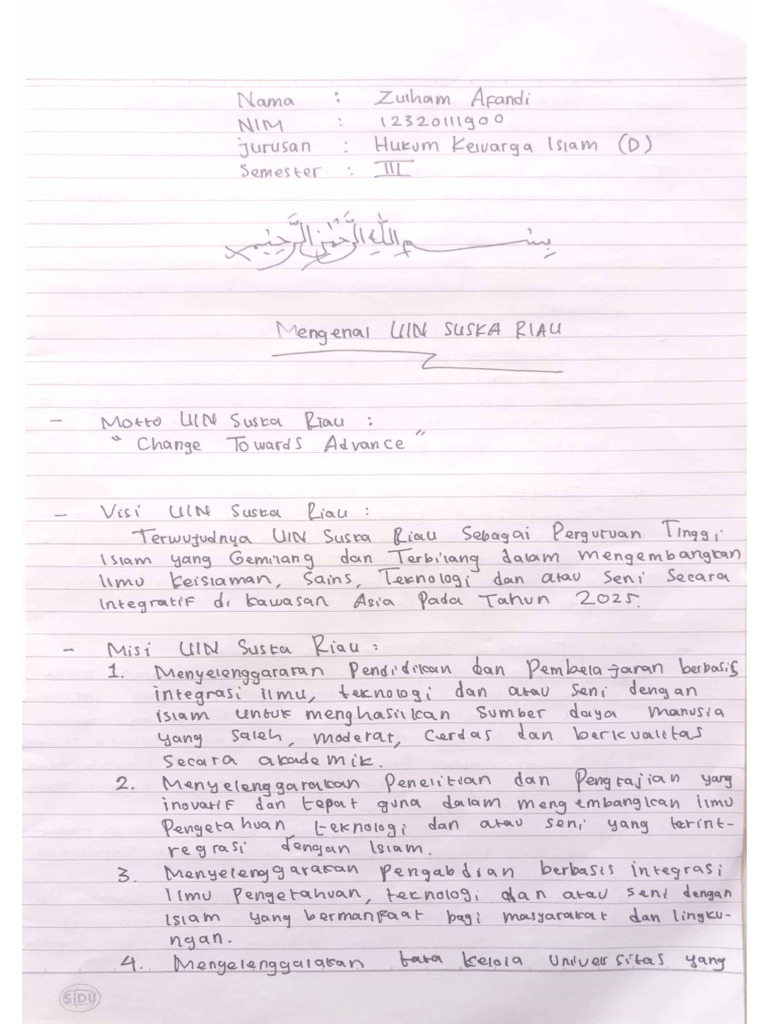 Nama : Zulham Afandi
NIM : 12320111900
Jurusan : Hukum Keluarga Islam (D)
Semester : III
بِسْمِ اللهِ الرَّحْمٰنِ الرَّحِيْمِ
Mengenal UIN SUSKA RIAU
- Motto UIN Suska Riau :
" Change Towards Advance "
- Visi UIN Suska Riau :
Terwujudnya UIN Suska Riau Sebagai Perguruan Tinggi
Islam yang Gemilang dan Terbilang dalam mengembangkan
Ilmu Keislaman, Sains, Teknologi dan atau Seni Secara
Integratif di kawasan Asia Pada Tahun 2025.
- Misi UIN Suska Riau :
1. Menyelenggarakan Pendidikan dan Pembelajaran berbasis
integrasi ilmu, teknologi dan atau seni dengan
islam untuk menghasilkan Sumber daya manusia
yang Saleh, moderat, Cerdas dan berkualitas
Secara akademik.
2. Menyelenggarakan Penelitian dan Pengkajian yang
inovatif dan tepat guna dalam mengembangkan ilmu
Pengetahuan, teknologi dan atau seni yang terint-
regrasi dengan Islam.
3. Menyelenggarakan Pengabdian berbasis integrasi
Ilmu Pengetahuan, teknologi dan atau seni dengan
Islam yang bermanfaat bagi masyarakat dan lingku-
ngan.
4. Menyelenggalakan tata kelola Universitas yang
SiDU